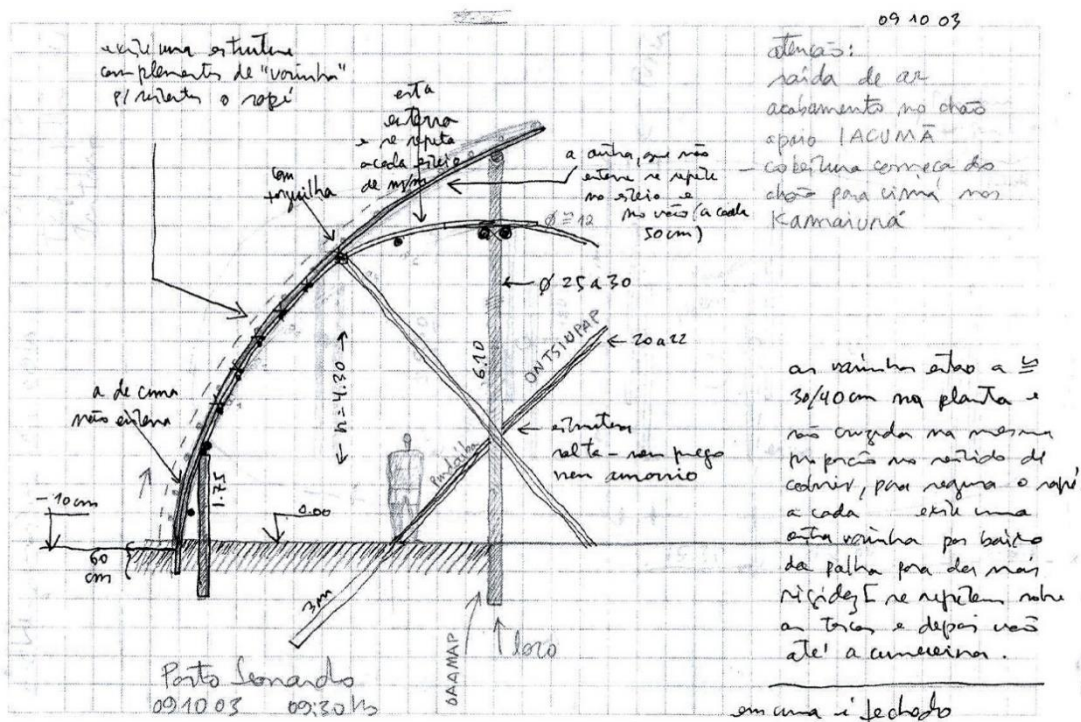 09 10 03
existe uma estrutura
complementar de "varinha"
p/ o sapé
esta
enterra
e se repete
a cada esteio
de
com
forquilha
a outra, que não
enterra se repete
no esteio e
no vão (a cada
50 cm)
Ø ≅ 12
Ø 25 a 30
20 a 22
6.10
ONTSINPAP
h = 4.30
a de cima
não enterra
1.75
Pindaíba
estrutura
solta - sem prego
nem
- 10 cm
0.00
60
cm
3m
OAAMAP
Porto Leonardo
09 10 03 09:30 hs
atenção:
saída de ar
acabamento no chão
apoio IACUMÃ
- cobertura começa do
chão para cima nos
Kamaiurá
as varinhas estão a ≅
30/40 cm na planta e
são cruzadas na mesma
proporção no sentido de
cobrir, para segurar o sapé
a cada existe uma
outra varinha por baixo
da palha pra dar mais
rigidez [ se repetem sobre
as terças e depois vão
até a cumeeira.
em cima é fechado